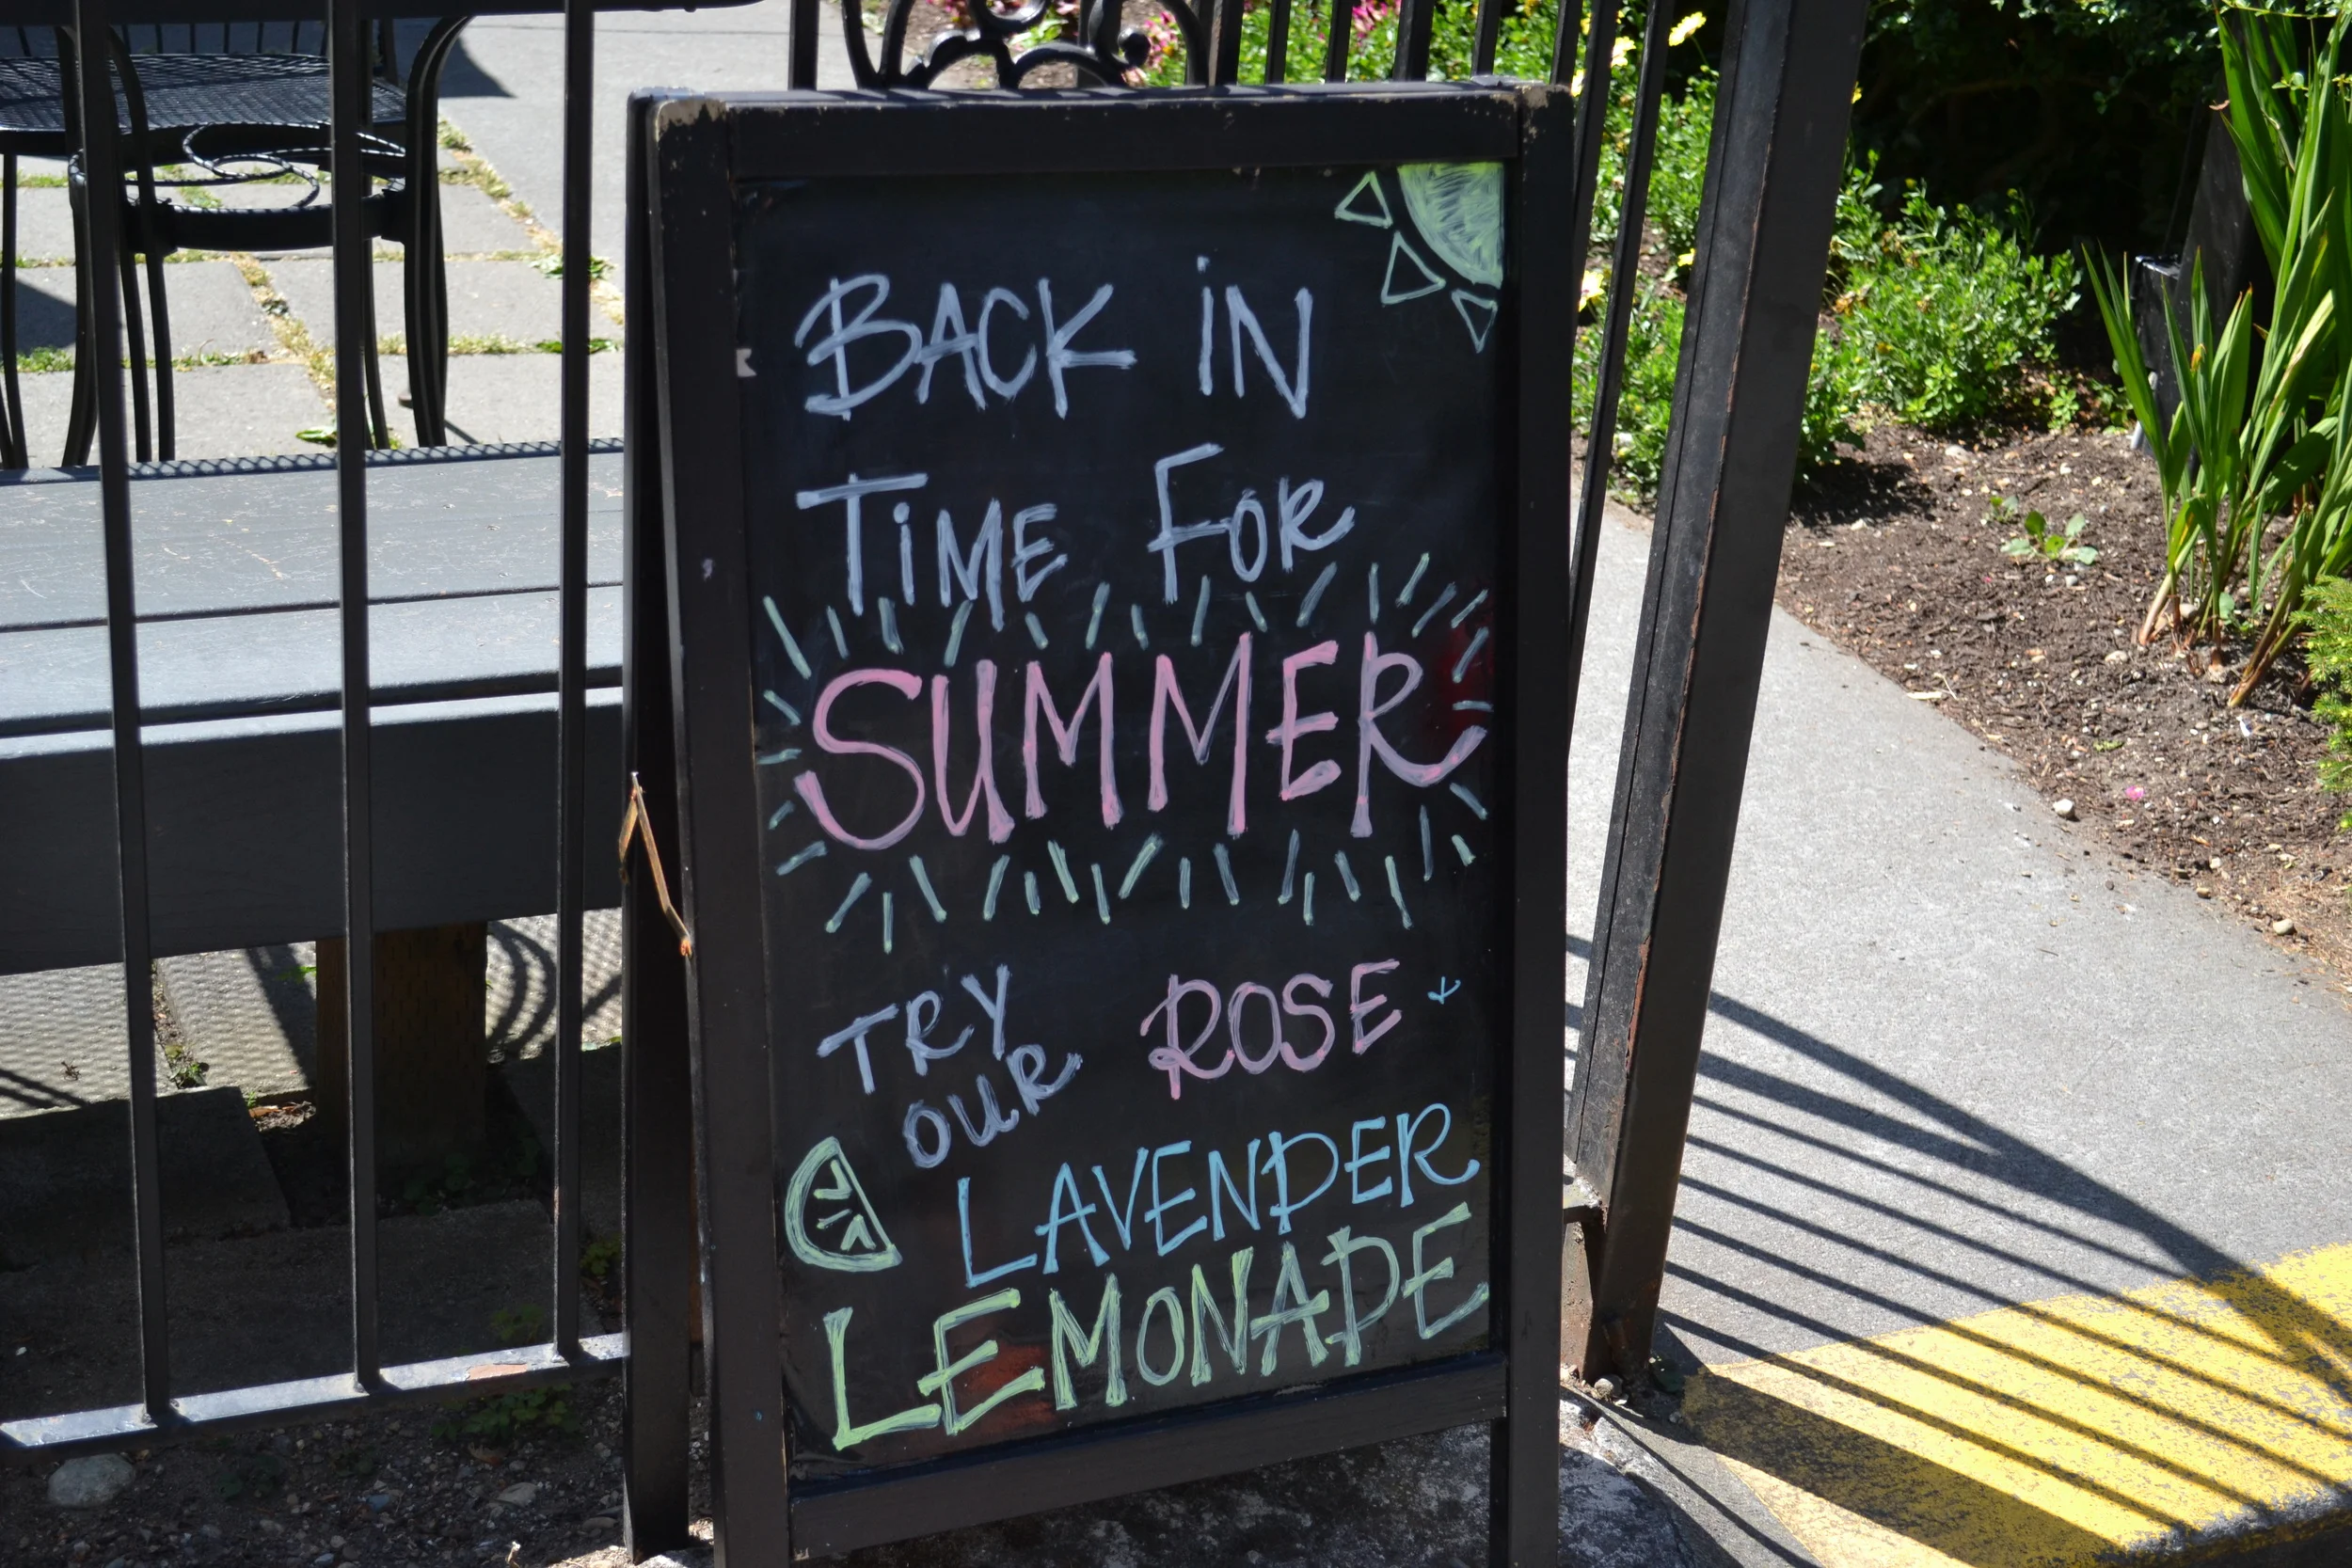 BACK iN
TiME FOR
SUMMER
TRY ROSE +
OUR
LAVENDER
LEMONADE